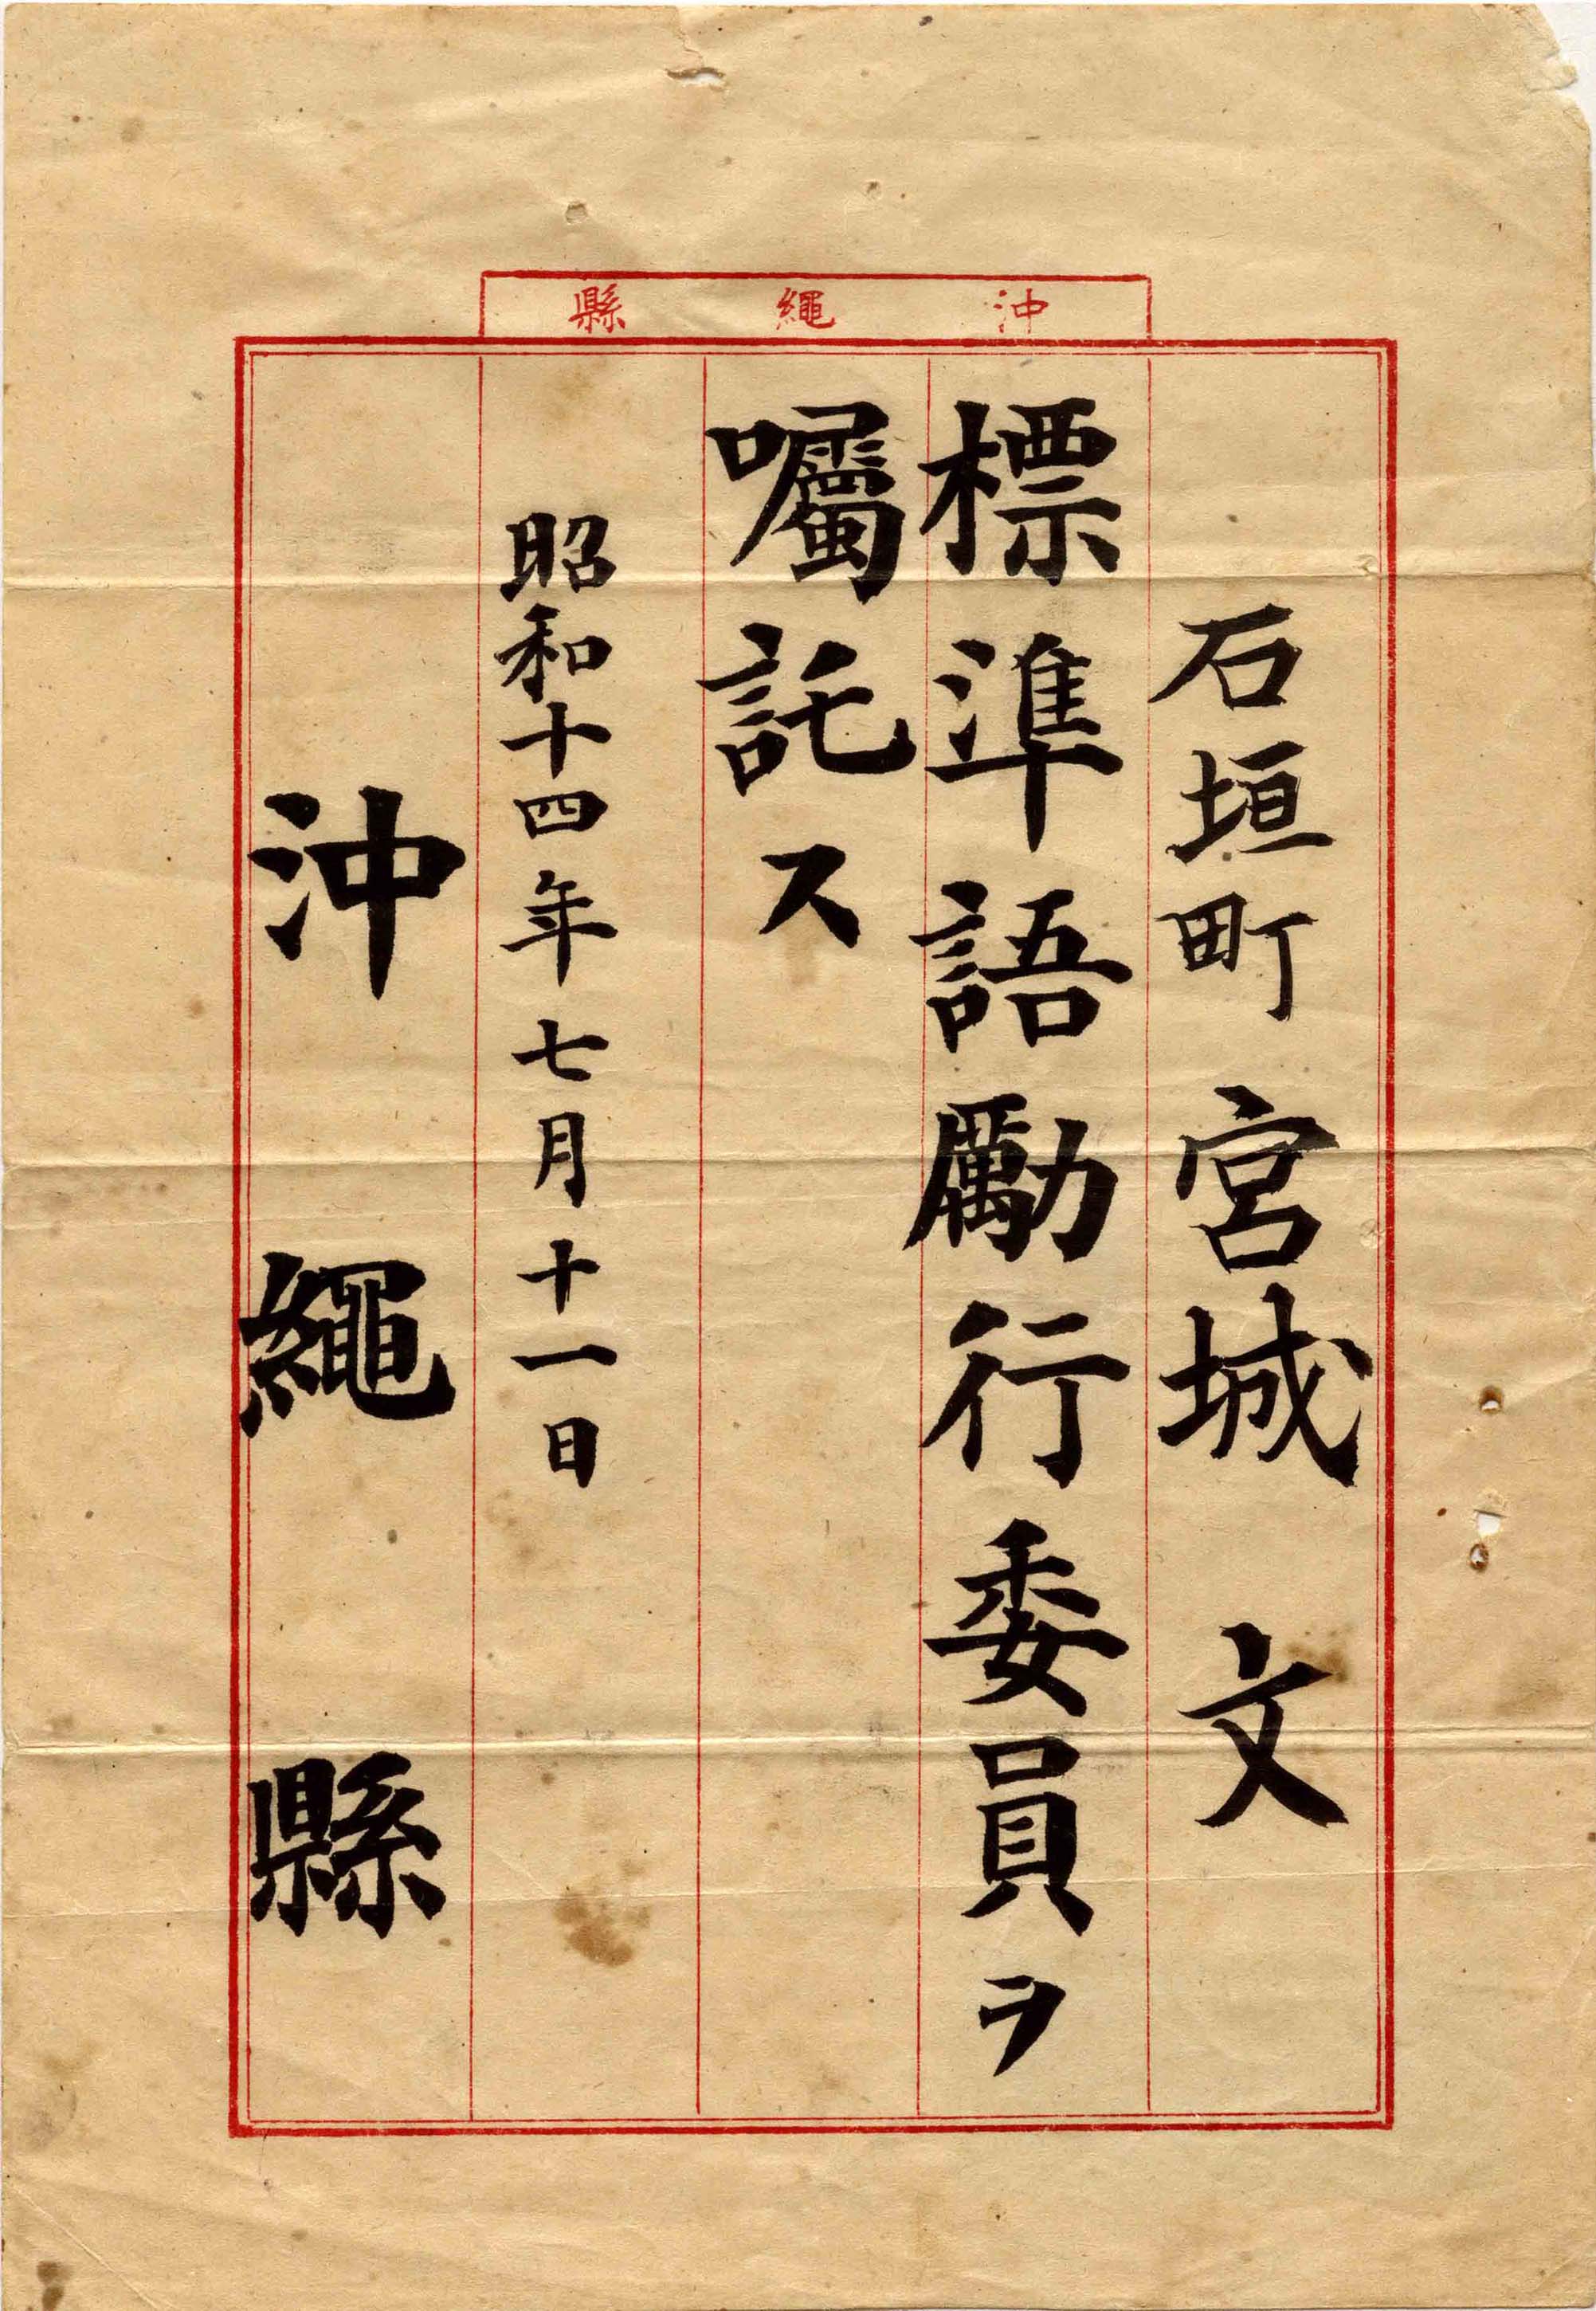 沖繩縣
石垣町 宮城 文
標準語勵行委員ヲ
囑託ス
昭和十四年七月十一日
沖繩縣